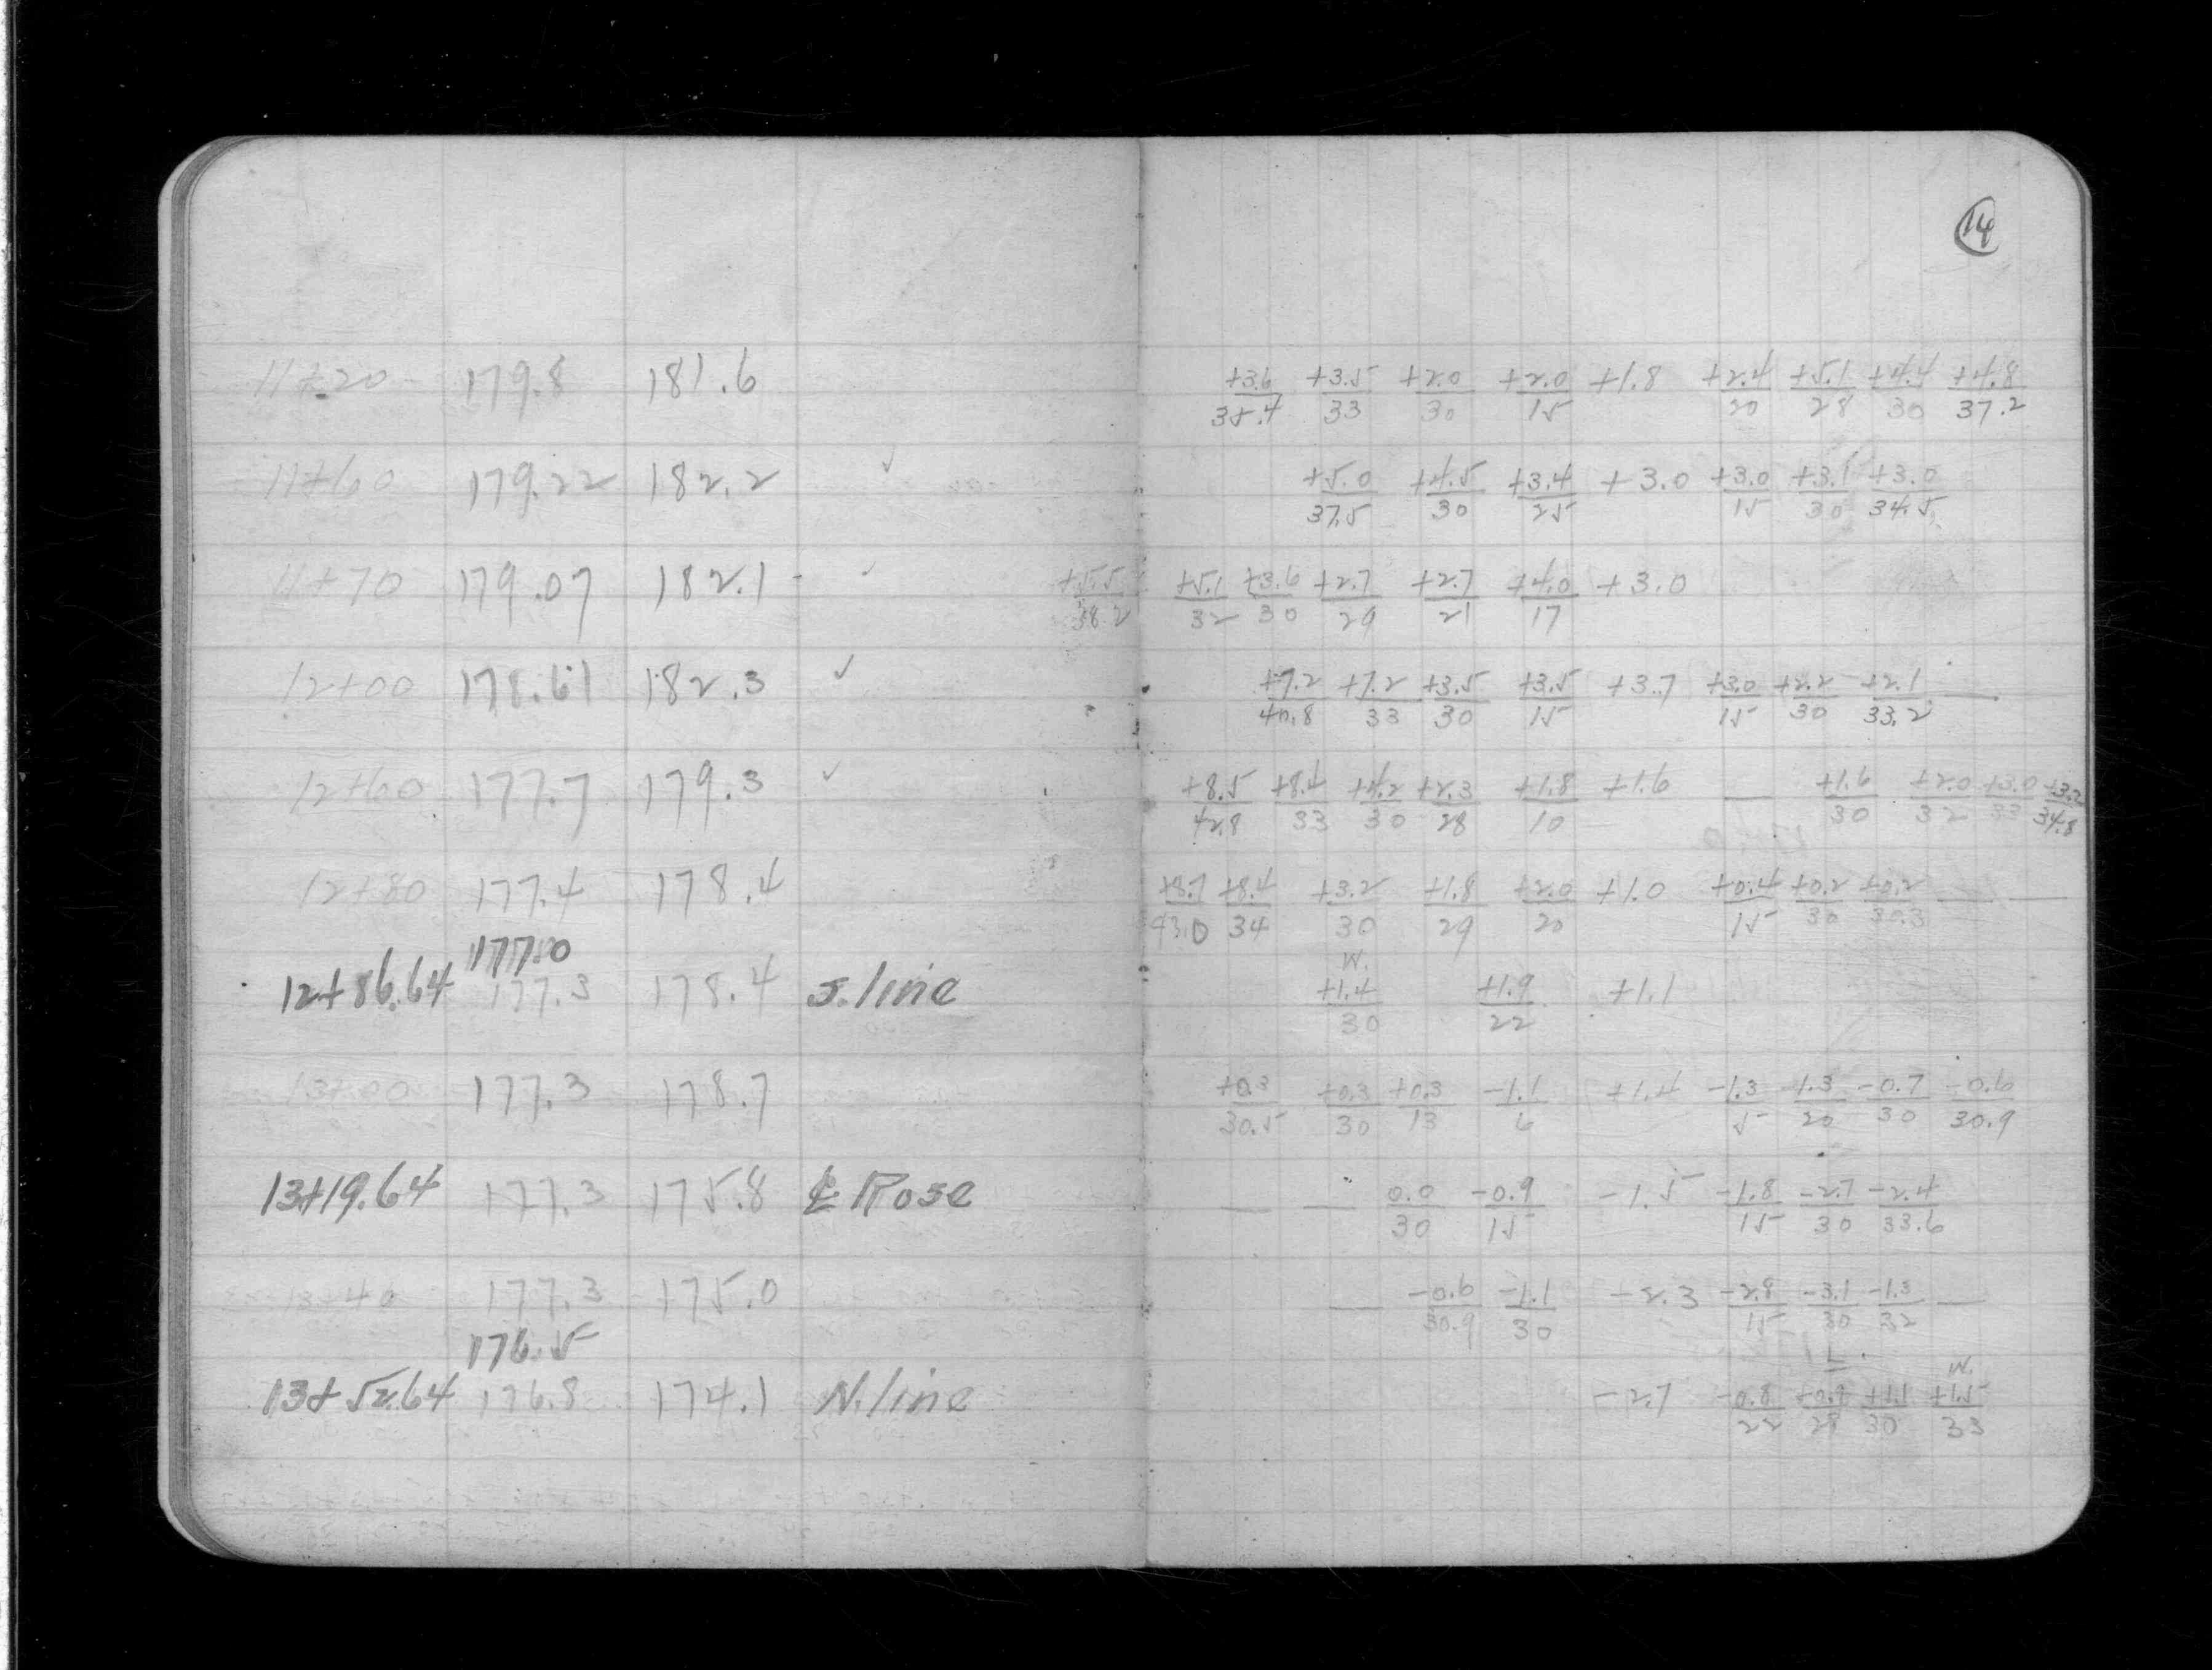 14
11+20 179.8 181.6 +3.6/35.4 +3.5/33 +2.0/30 +2.0/15 +1.8 +2.4/20 +5.1/28 +4.4/30 +4.8/37.2
11+60 179.22 182.2 ✓ +5.0/37.5 +4.5/30 +3.4/25 +3.0 +3.0/15 +3.1/30 +3.0/34.5
11+70 179.07 182.1 ✓ +5.5/38.2 +5.1/32 +3.6/30 +2.7/29 +2.7/21 +4.0/17 +3.0
12+00 178.61 182.3 ✓ +7.2/40.8 +7.2/33 +3.5/30 +3.5/15 +3.7 +3.0/15 +2.2/30 +2.1/33.2 —
12+60 177.7 179.3 ✓ +8.5/42.8 +8.4/33 +4.2/30 +2.3/28 +1.8/10 +1.6 — +1.6/30 +2.0/32 +3.0/33 +3.2/34.8
12+80 177.4 178.4 +8.7/43.0 +8.4/34 +3.2/30 +1.8/29 +2.0/20 +1.0 +0.4/15 +0.2/30 +0.2/30.3 — —
177.0 W.
12+86.64 177.3 178.4 S. line +1.4/30 +1.9/22 +1.1
13+00 177.3 178.7 +0.3/30.5 +0.3/30 +0.3/13 -1.1/6 +1.4 -1.3/5 -1.3/20 -0.7/30 -0.6/30.9
13+19.64 177.3 175.8 ℄ Rose — — 0.0/30 -0.9/15 -1.5 -1.8/15 -2.7/30 -2.4/33.6
13+40 177.3 175.0 — -0.6/30.9 -1.1/30 -2.3 -2.8/15 -3.1/30 -1.3/32 —
176.5 L W.
13+52.64 176.8 174.1 N. line -2.7 -0.8/22 +0.8/28 +1.1/30 +1.5/33